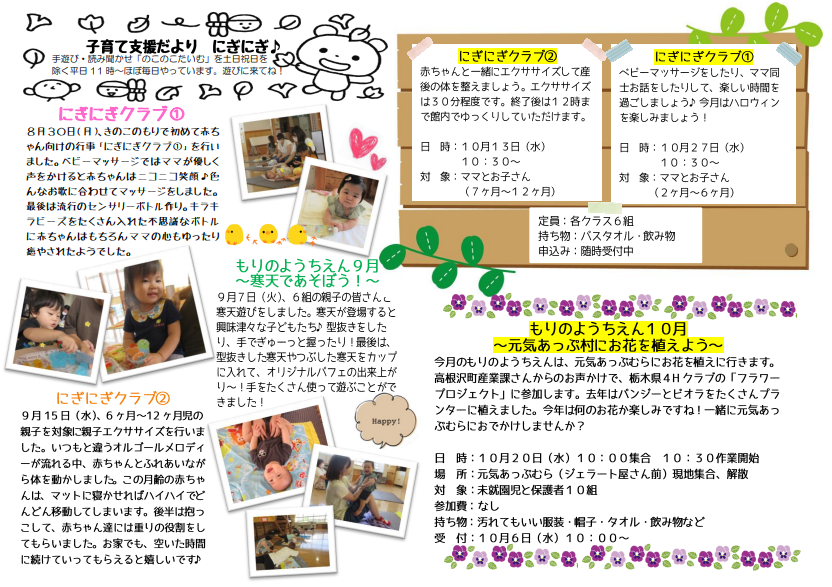 子育て支援だより　にぎにぎ♪
手遊び・読み聞かせ「のこのこたいむ」を土日祝日を
除く平日11時～ほぼ毎日やっています。遊びに来てね！
にぎにぎクラブ①
８月３０日（月）、きのこのもりで初めて赤ち
ゃん向けの行事「にぎにぎクラブ①」を行い
ました。ベビーマッサージではママが優しく
声をかけると赤ちゃんはニコニコ笑顔♪色
んなお歌に合わせてマッサージをしました。
最後は流行のセンサリーボトル作り。キラキ
ラビーズをたくさん入れた不思議なボトル
に赤ちゃんはもちろんママの心もゆったり
癒やされたようでした。
にぎにぎクラブ②
９月１５日（水）、６ヶ月～１２ヶ月児の
親子を対象に親子エクササイズを行いま
した。いつもと違うオルゴールメロディ
ーが流れる中、赤ちゃんとふれあいなが
ら体を動かしました。この月齢の赤ちゃ
んは、マットに寝かせればハイハイでど
んどん移動してしまいます。後半は抱っ
こして、赤ちゃん達には重りの役割をし
てもらいました。お家でも、空いた時間
に続けていってもらえると嬉しいです♪
もりのようちえん９月
～寒天であそぼう！～
９月７日（火）、６組の親子の皆さんと
寒天遊びをしました。寒天が登場すると
興味津々な子どもたち♪型抜きをした
り、手でぎゅーっと握ったり！最後は、
型抜きした寒天やつぶした寒天をカップ
に入れて、オリジナルパフェの出来上が
り～！手をたくさん使って遊ぶことがで
きました！
Happy!
にぎにぎクラブ②
赤ちゃんと一緒にエクササイズして産
後の体を整えましょう。エクササイズ
は３０分程度です。終了後は１２時ま
で館内でゆっくりしていただけます。
日　時：１０月１３日（水）
１０：３０～
対　象：ママとお子さん
（７ヶ月～１２ヶ月）
にぎにぎクラブ①
ベビーマッサージをしたり、ママ同
士お話をしたりして、楽しい時間を
過ごしましょう♪今月はハロウィン
を楽しみましょう！
日　時：１０月２７日（水）
１０：３０～
対　象：ママとお子さん
（２ヶ月～６ヶ月）
定員：各クラス６組
持ち物：バスタオル・飲み物
申込み：随時受付中
もりのようちえん１０月
～元気あっぷ村にお花を植えよう～
今月のもりのようちえんは、元気あっぷむらにお花を植えに行きます。
高根沢町産業課さんからのお声かけで、栃木県４Ｈクラブの「フラワー
プロジェクト」に参加します。去年はパンジーとビオラをたくさんプラ
ンターに植えました。今年は何のお花か楽しみですね！一緒に元気あっ
ぷむらにおでかけしませんか？
日　時：１０月２０日（水）１０：００集合　１０：３０作業開始
場　所：元気あっぷむら（ジェラート屋さん前）現地集合、解散
対　象：未就園児と保護者１０組
参加費：なし
持ち物：汚れてもいい服装・帽子・タオル・飲み物など
受　付：１０月６日（水）１０：００～